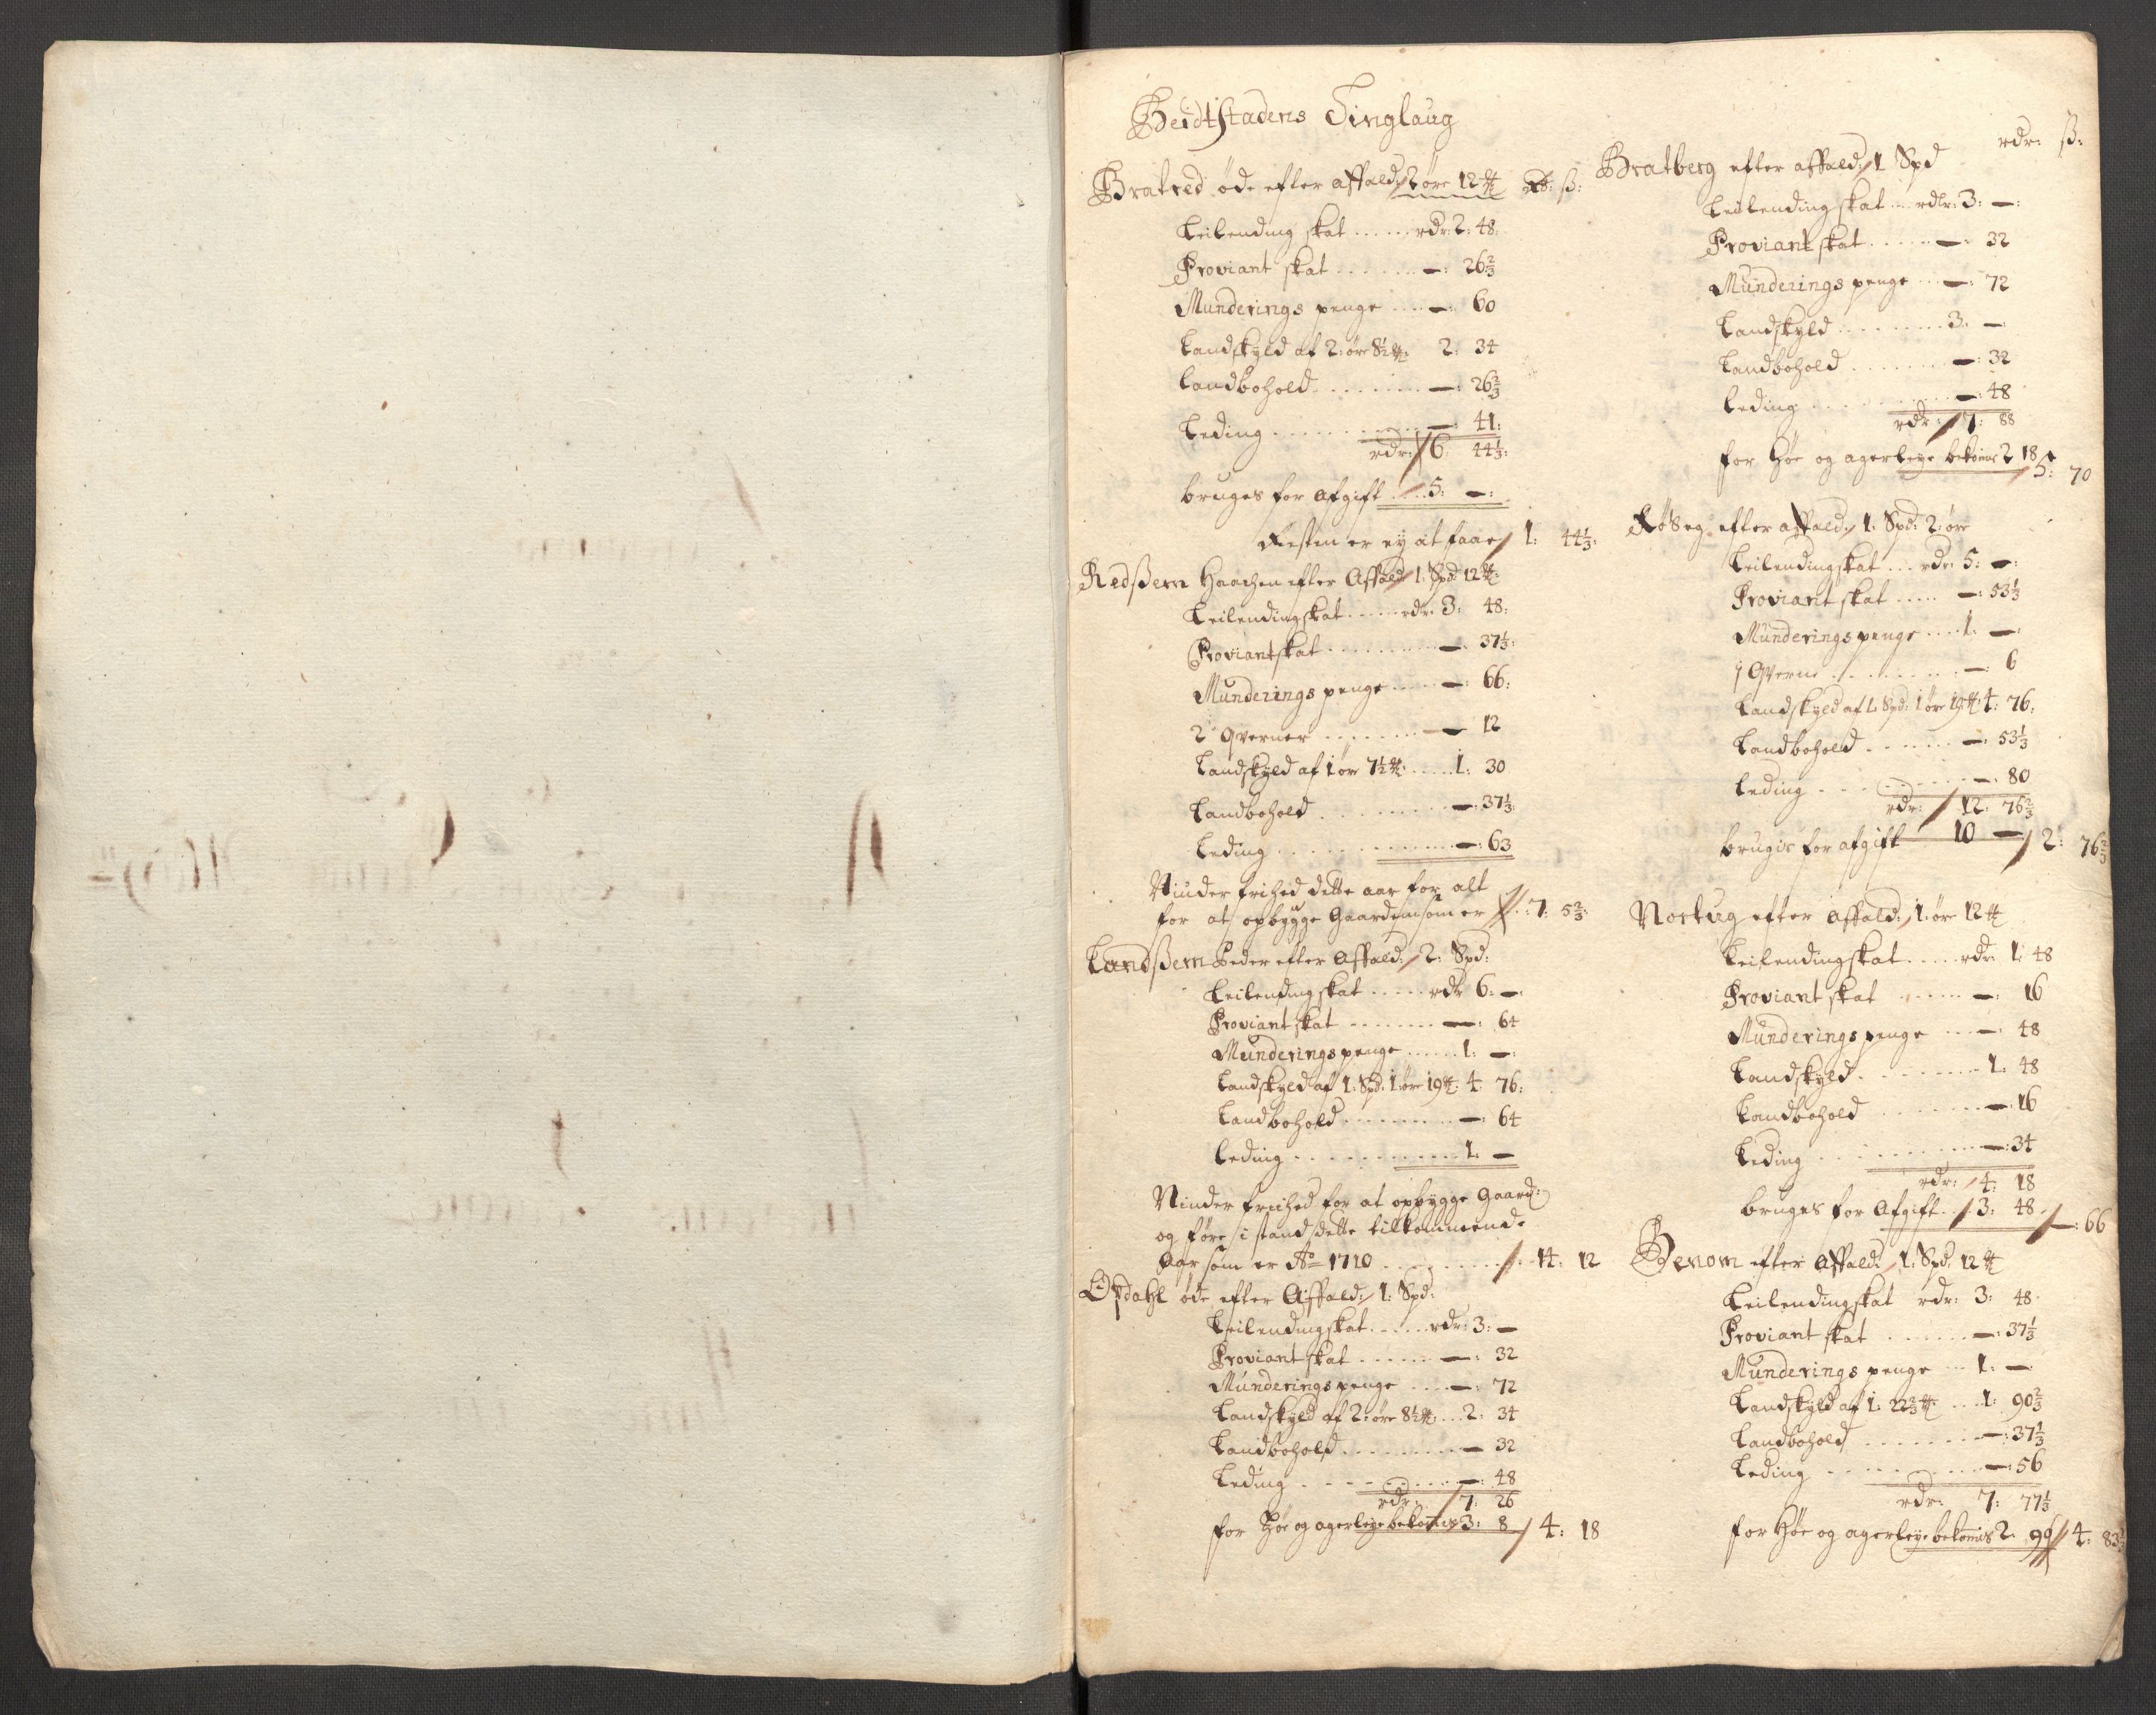 Beidtstadens Tinglaug
Bratred øde efter affald: 2 øre 12 ℔ rdr: ß:
Leilending skat ..... rdr: 2: 48:
Proviant skat ....... —: 26⅔
Munderings penge .... —: 60
Landskyld af 2: øre 8½ ℔: 2: 34
Landbohold ....... —: 26⅔
Leding .......... —: 41:
rdr: 6: 44⅓:
bruges for afgift .... 5: —:
Resten er ey at faae 1: 44⅓:
Redßem Haachen efter Affald: 1: Spd 12 ℔:
Leilendingskat ..... rdr: 3: 48:
Proviantskat ......... —: 37⅓:
Munderings penge ..... —: 66:
2 qverner ....... — 12
Landskyld af 1 øre 7½ ℔: .... 1: 30
Landbohold ......... —: 37⅓:
Leding ............ —: 63
Niuder frihed dette aar for alt
for at opbygge Gaarden som er .. 7: 5⅔:
Landßem Peder efter Affald: 2: Spd:
Leilendingskat ..... rdr 6: —:
Proviantskat ........ —: 64
Munderingspenge ...... 1: —:
Landskyld af 1: Spd: 1: øre 19 ℔: 4: 76:
Landbohold ......... —: 64
Leding ........... 1: —
Niuder frihed for at opbygge Gaard:
og føre i stand dette tilkommende
Aar som er Ao 1710 ......... 14: 12
Opdahl øde efter Affald: 1: Spd:
Leilendingskat ..... rdr: 3: —
Proviantskat ...... —: 32
Munderingspenge .... —: 72
Landskyld af 2: øre 8½ ℔: ... 2: 34
Landbohold ......... — 32
Leding ......... —: 48
rdr: 7: 26
for Høe og agerleye bekomes 3: 8 4: 18
rdr: ß:
Bratberg efter affald: 1 Spd
Leilendingskat ... rdlr: 3: —:
Proviantskat ..... —: 32
Munderings penge ... —: 72
Landskyld ........ 3: —
Landbohold ....... —: 32
Leding .......... —: 48
rdr: 7: 88
for Høe og agerleye bekomes 2 18 5: 70
Røseg: efter affald: 1: Spd: 2: øre
Leilendingskat ... rdr: 5: —:
Proviantskat ..... —: 53⅓
Munderingspenge .... 1: —:
1 Qverne ........ —: 6
Landskyld af 1: Spd: 1 øre 19 ℔: 4: 76:
Landbohold ...... —: 53⅓
Leding ........ —: 80
rdr: 12: 76⅔
brugis for afgift 10 — 2: 76⅔
Nortug efter affald: 1: øre 12 ℔
Leilendingskat .... rdr 1: 48
Proviant skat ...... —: 16
Munderingspenge .... —: 48
Landskyld ....... 1: 48
Landbohold ....... —: 16
Leding ......... —: 34
rdr: 4: 18
bruges for Afgift .. 3: 48 —: 66
Benom efter Affald: 1: Spd: 12 ℔
Leilendingskat rdr: 3: 48
Proviant skat ...... —: 37⅓
Munderings penge ... 1: —
Landskyld af 1: 22⅔ ℔: ... 1: 90⅔
Landbohold ....... —: 37⅓
Leding ......... —: 56
rdr: 7: 77⅓
for Høe og agerleye bekomes 2: 90 4: 83⅓